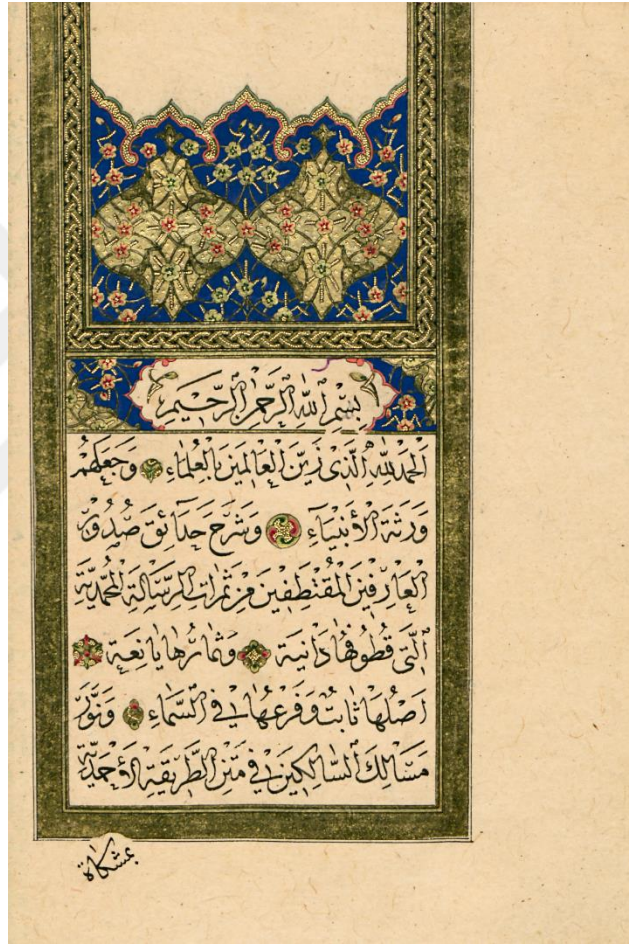 بِسْمِ اللهِ الرَّحْمٰنِ الرَّحِيمِ
اَلْحَمْدُ لِلّٰهِ الَّذِى زَيَّنَ الْعَالَمِينَ بِالْعُلَمَاءِ وَجَعَلَهُمْ
وَرَثَةَ الْأَنْبِيَآءِ وَشَرَحَ حَدَآئِقَ صُدُورِ
الْعَارِفِينَ الْمُقْتَطِفِينَ مِنْ ثَمَرَاتِ الرِّسَالَةِ الْمُحَمَّدِيَّةِ
الَّتِى قُطُوفُهَا دَانِيَةٌ وَثِمَارُهَا يَانِعَةٌ
اَصْلُهَا ثَابِتٌ وَفَرْعُهَا فِى السَّمَاءِ وَنَوَّرَ
مَسَالِكَ السَّالِكِينَ فِى مَتْنِ الطَّرِيقَةِ الْأَحْمَدِيَّةِ
بمشكاة